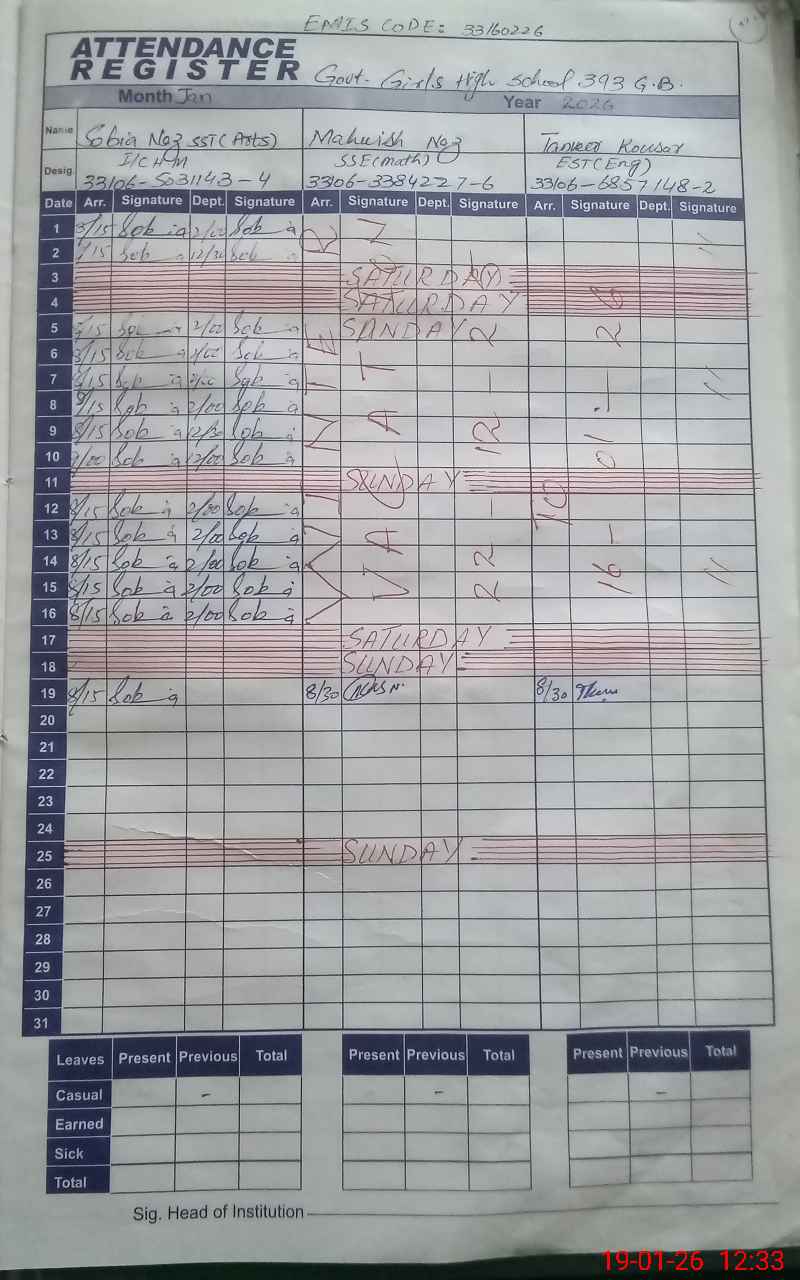 EMIS CODE: 33160226
ATTENDANCE
REGISTER Govt. Girls High School 393 G.B.
Month Jan Year 2026
Name Sobia Naz SST (Arts) Mahwish Naz Tanveer Kousar
Desig. I/C H.M SSE (math) EST (Eng)
33106-5031143-4 33106-3384227-6 33106-6857148-2
Date Arr. Signature Dept. Signature Arr. Signature Dept. Signature Arr. Signature Dept. Signature
1 8/15 Sobia 2/00 Sobia
2 8/15 Sobia 12/30 Sobia
3 SATURDAY
4 SATURDAY
5 8/15 Sobia 2/00 Sobia SUNDAY
6 8/15 Sobia 2/00 Sobia
7 8/15 Sobia 2/00 Sobia
8 8/15 Sobia 2/00 Sobia
9 8/15 Sobia 12/30 Sobia
10 9/00 Sobia 12/00 Sobia
11 SUNDAY
12 8/15 Sobia 2/00 Sobia
13 8/15 Sobia 2/00 Sobia
14 8/15 Sobia 2/00 Sobia
15 8/15 Sobia 2/00 Sobia
16 8/15 Sobia 2/00 Sobia
WINTER
VACATION
22-12-2
TO
16-01-26
17 SATURDAY
18 SUNDAY
19 8/15 Sobia 8/30 8/30
20
21
22
23
24
25 SUNDAY
26
27
28
29
30
31
Leaves Present Previous Total Present Previous Total Present Previous Total
Casual - - -
Earned
Sick
Total
Sig. Head of Institution
19-01-26 12:33